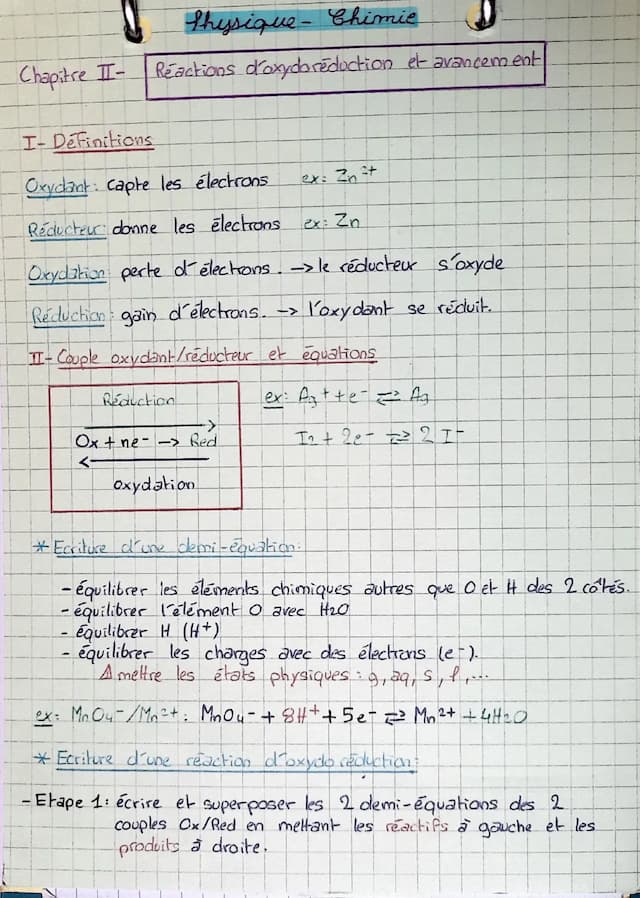 Physique - Chimie
Chapitre II- Réactions d'oxydoréduction et avancement
I- Définitions
Oxydant: capte les électrons ex: Zn²⁺
Réducteur: donne les électrons ex: Zn
Oxydation perte d'électrons. -> le réducteur s'oxyde
Réduction: gain d'électrons. -> l'oxydant se réduit.
II- Couple oxydant/réducteur et équations
Réduction
Ox + ne- -> Red
oxydation
ex: Ag⁺ + e⁻ ⇄ Ag
I2 + 2e⁻ ⇄ 2 I⁻
* Ecriture d'une demi-équation:
- équilibrer les éléments chimiques autres que O et H des 2 côtés.
- équilibrer l'élément O avec H2O
- équilibrer H (H⁺)
- équilibrer les charges avec des électrons (e⁻).
⚠ mettre les états physiques : g, aq, s, l,...
ex: MnO4⁻/Mn²⁺: MnO4⁻ + 8H⁺ + 5e⁻ ⇄ Mn²⁺ + 4H2O
* Ecriture d'une réaction d'oxydo réduction:
- Etape 1: écrire et superposer les 2 demi-équations des 2
couples Ox/Red en mettant les réactifs à gauche et les
produits à droite.